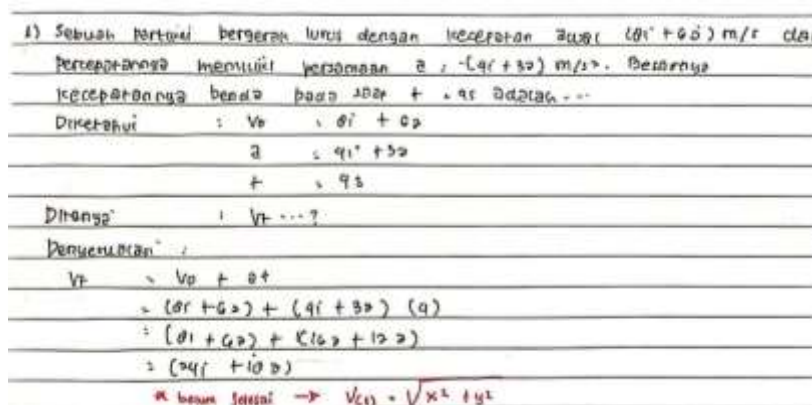 1) Sebuah partikel bergerak lurus dengan kecepatan awal (8i + 6j) m/s da
Percepatannya memiliki persamaan a = (4i + 3j) m/s². Besarnya
kecepatannya benda pada saat t = 4s adalah ...
Diketahui : Vo = 8i + 6j
a = 4i + 3j
t = 4s
Ditanya : Vt ...?
Penyelesaian :
Vt = Vo + at
= (8i + 6j) + (4i + 3j) (4)
= (8i + 6j) + (16j + 12j)
= (24i + 18j)
* belum selesai → V(t) = √x² + y²